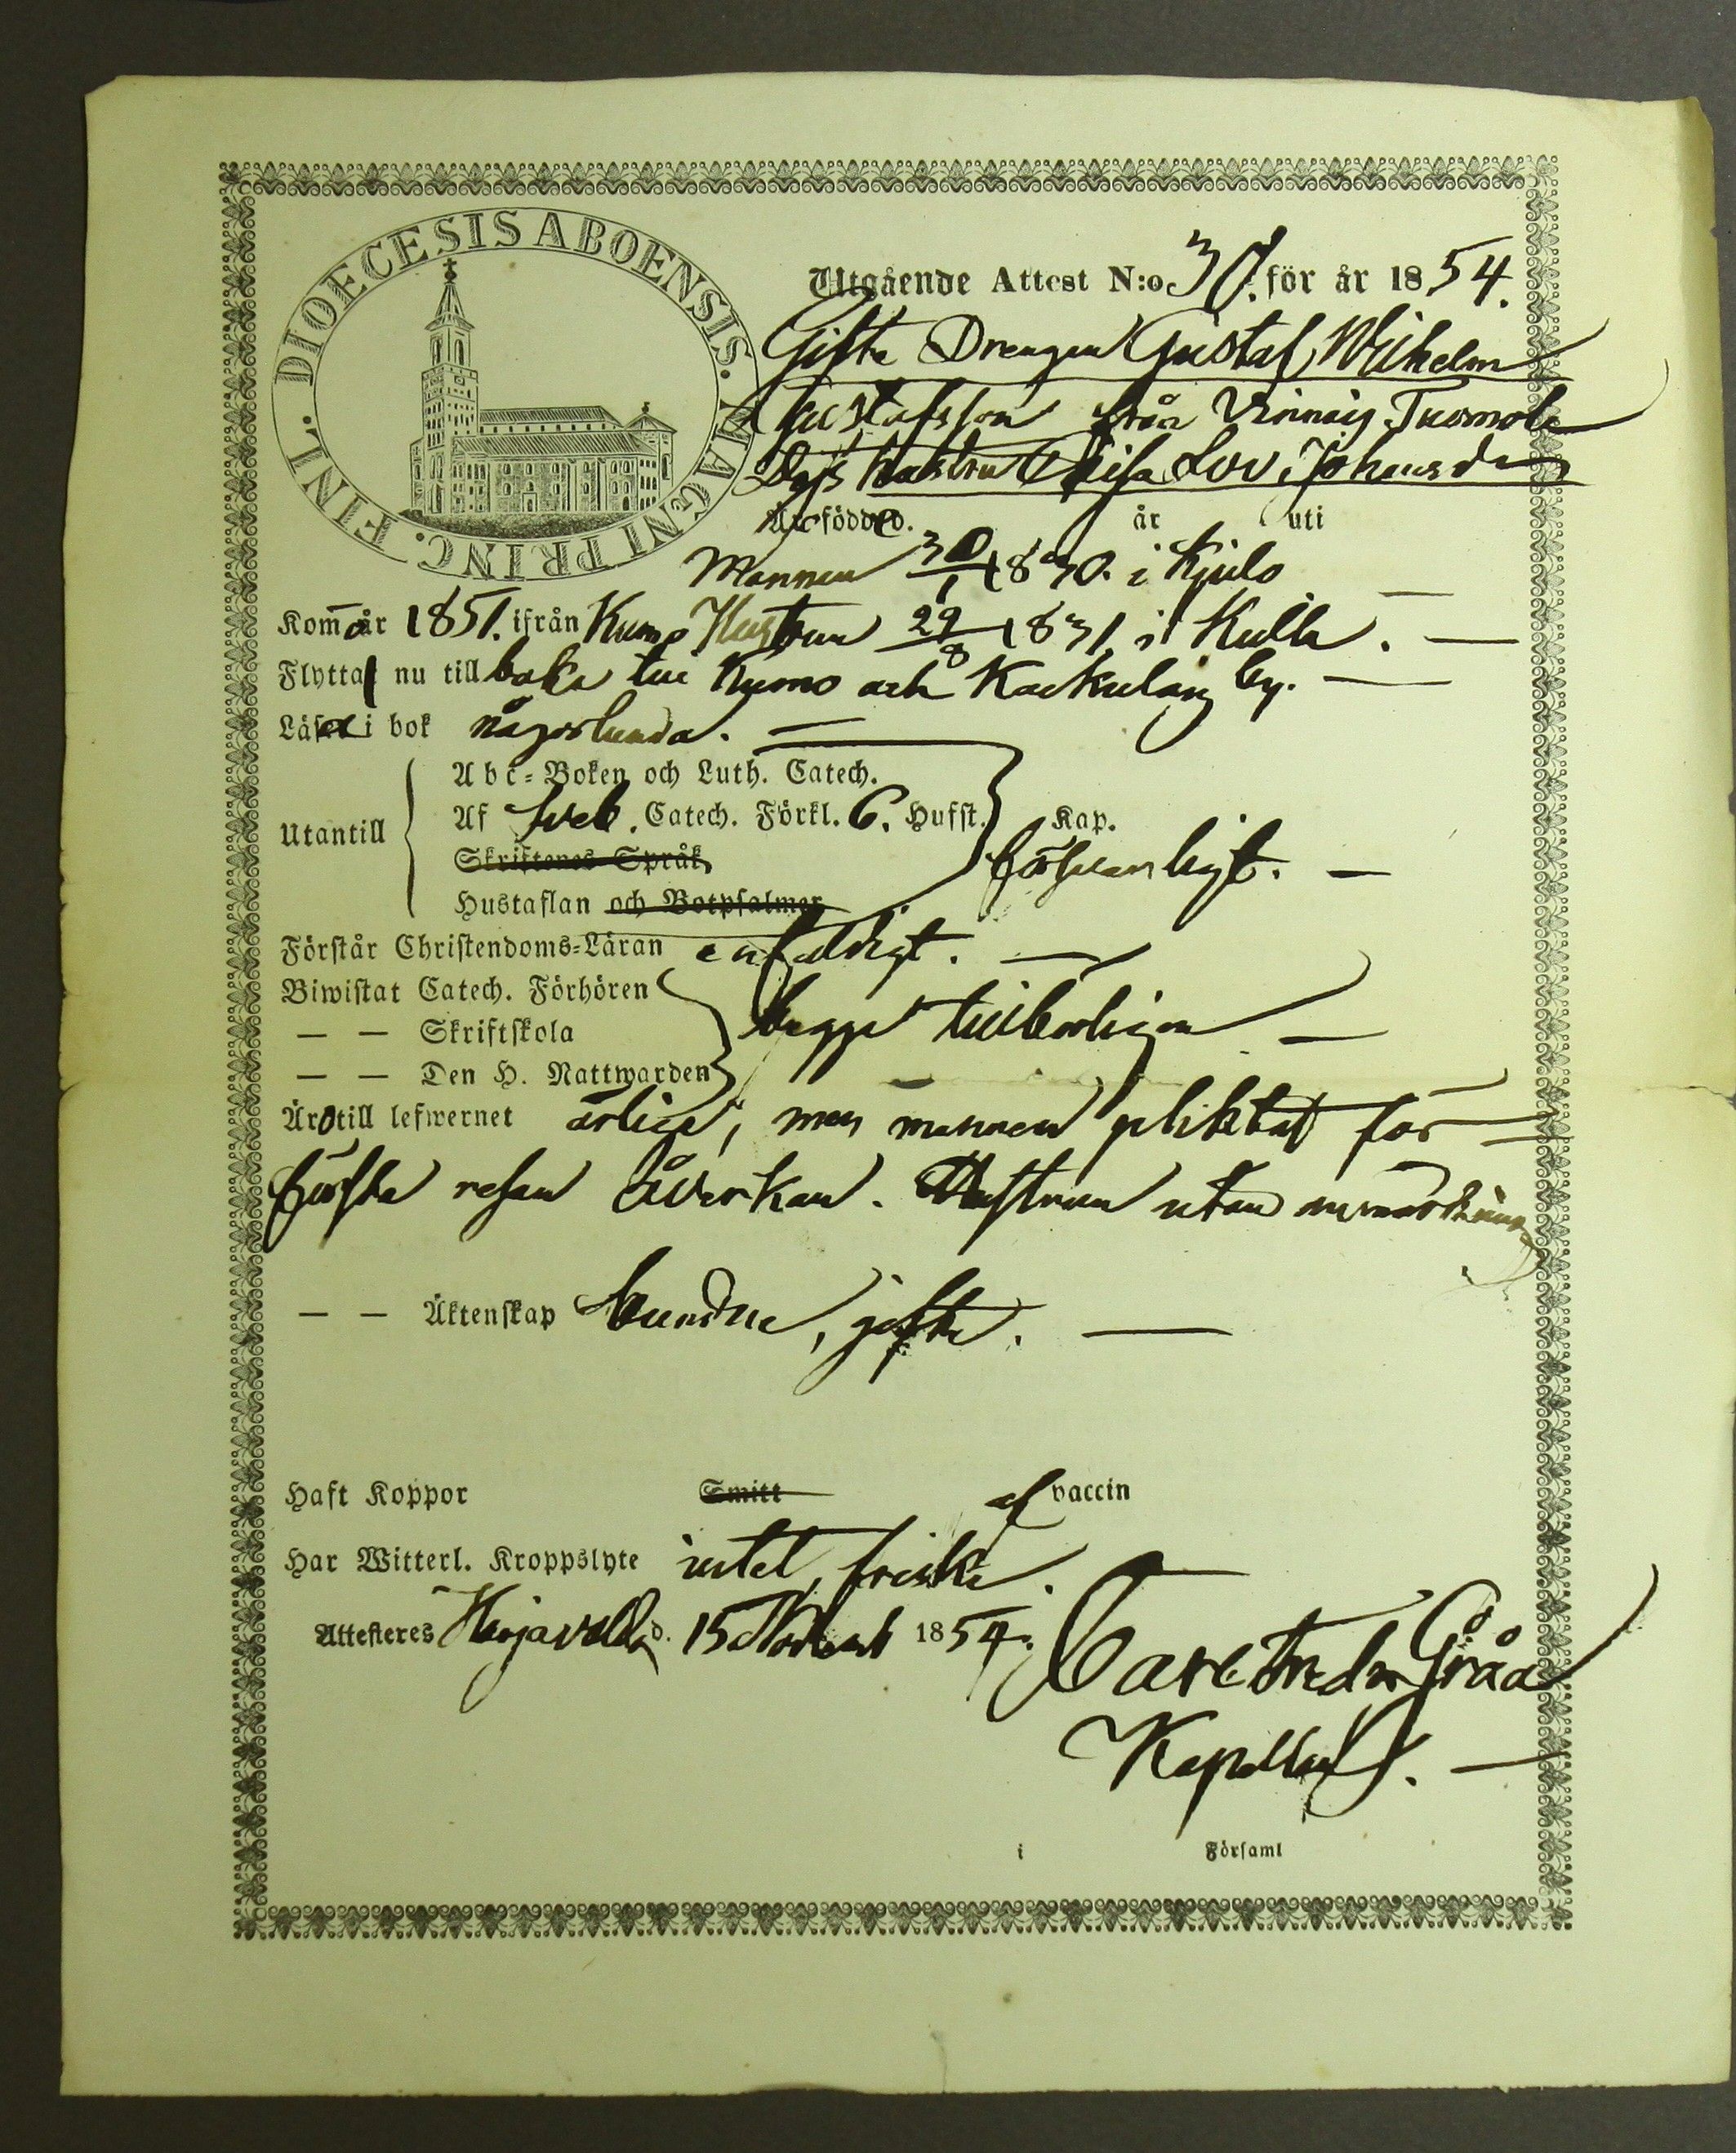 FINL. DIOECESIS ABOENSIS. MAGNI PRINC.
Utgående Attest N:o 30. för år 1854.
Gifta Drengen Gustaf Wilhelm
Gustafsson från Vinnäis Tuomola
Dess hustru Lovisa Johansdr
Äro födde d. år uti
Mannen 30/1 1830. i Kjulo
Kommo år 1851. ifrån Kumo Hustrun 29/8 1831 i Kulla. —
Flytta nu tillbaka till Kumo och Kackulais by. —
Läsa i bok någorlunda. —
Abc-Boken och Luth. Catech.
Utantill Af Sveb. Catech. Förkl. 6. Hufst. Kap.
Skriftenes Språk försvarligt. —
Hustaflan och Botpsalmer
Förstår Christendoms-Läran enfaldigt. —
Biwistat Catech. Förhören
— — Skriftskola begge tillbörligen —
— — Den H. Nattwarden
Äro till lefwernet ärliga, men mannen pliktat för
första resan åverkan. Hustrun utan anmärkning
— — Äktenskap bundne, gifte. —
Haft Koppor Smitt af vaccin
Har Witterl. Kroppslyte intet, friska.
Attesteres Harjavalda d. 15 Novemb 1854.
Carl Fredr Gråå
Kapellan. —
i Församl